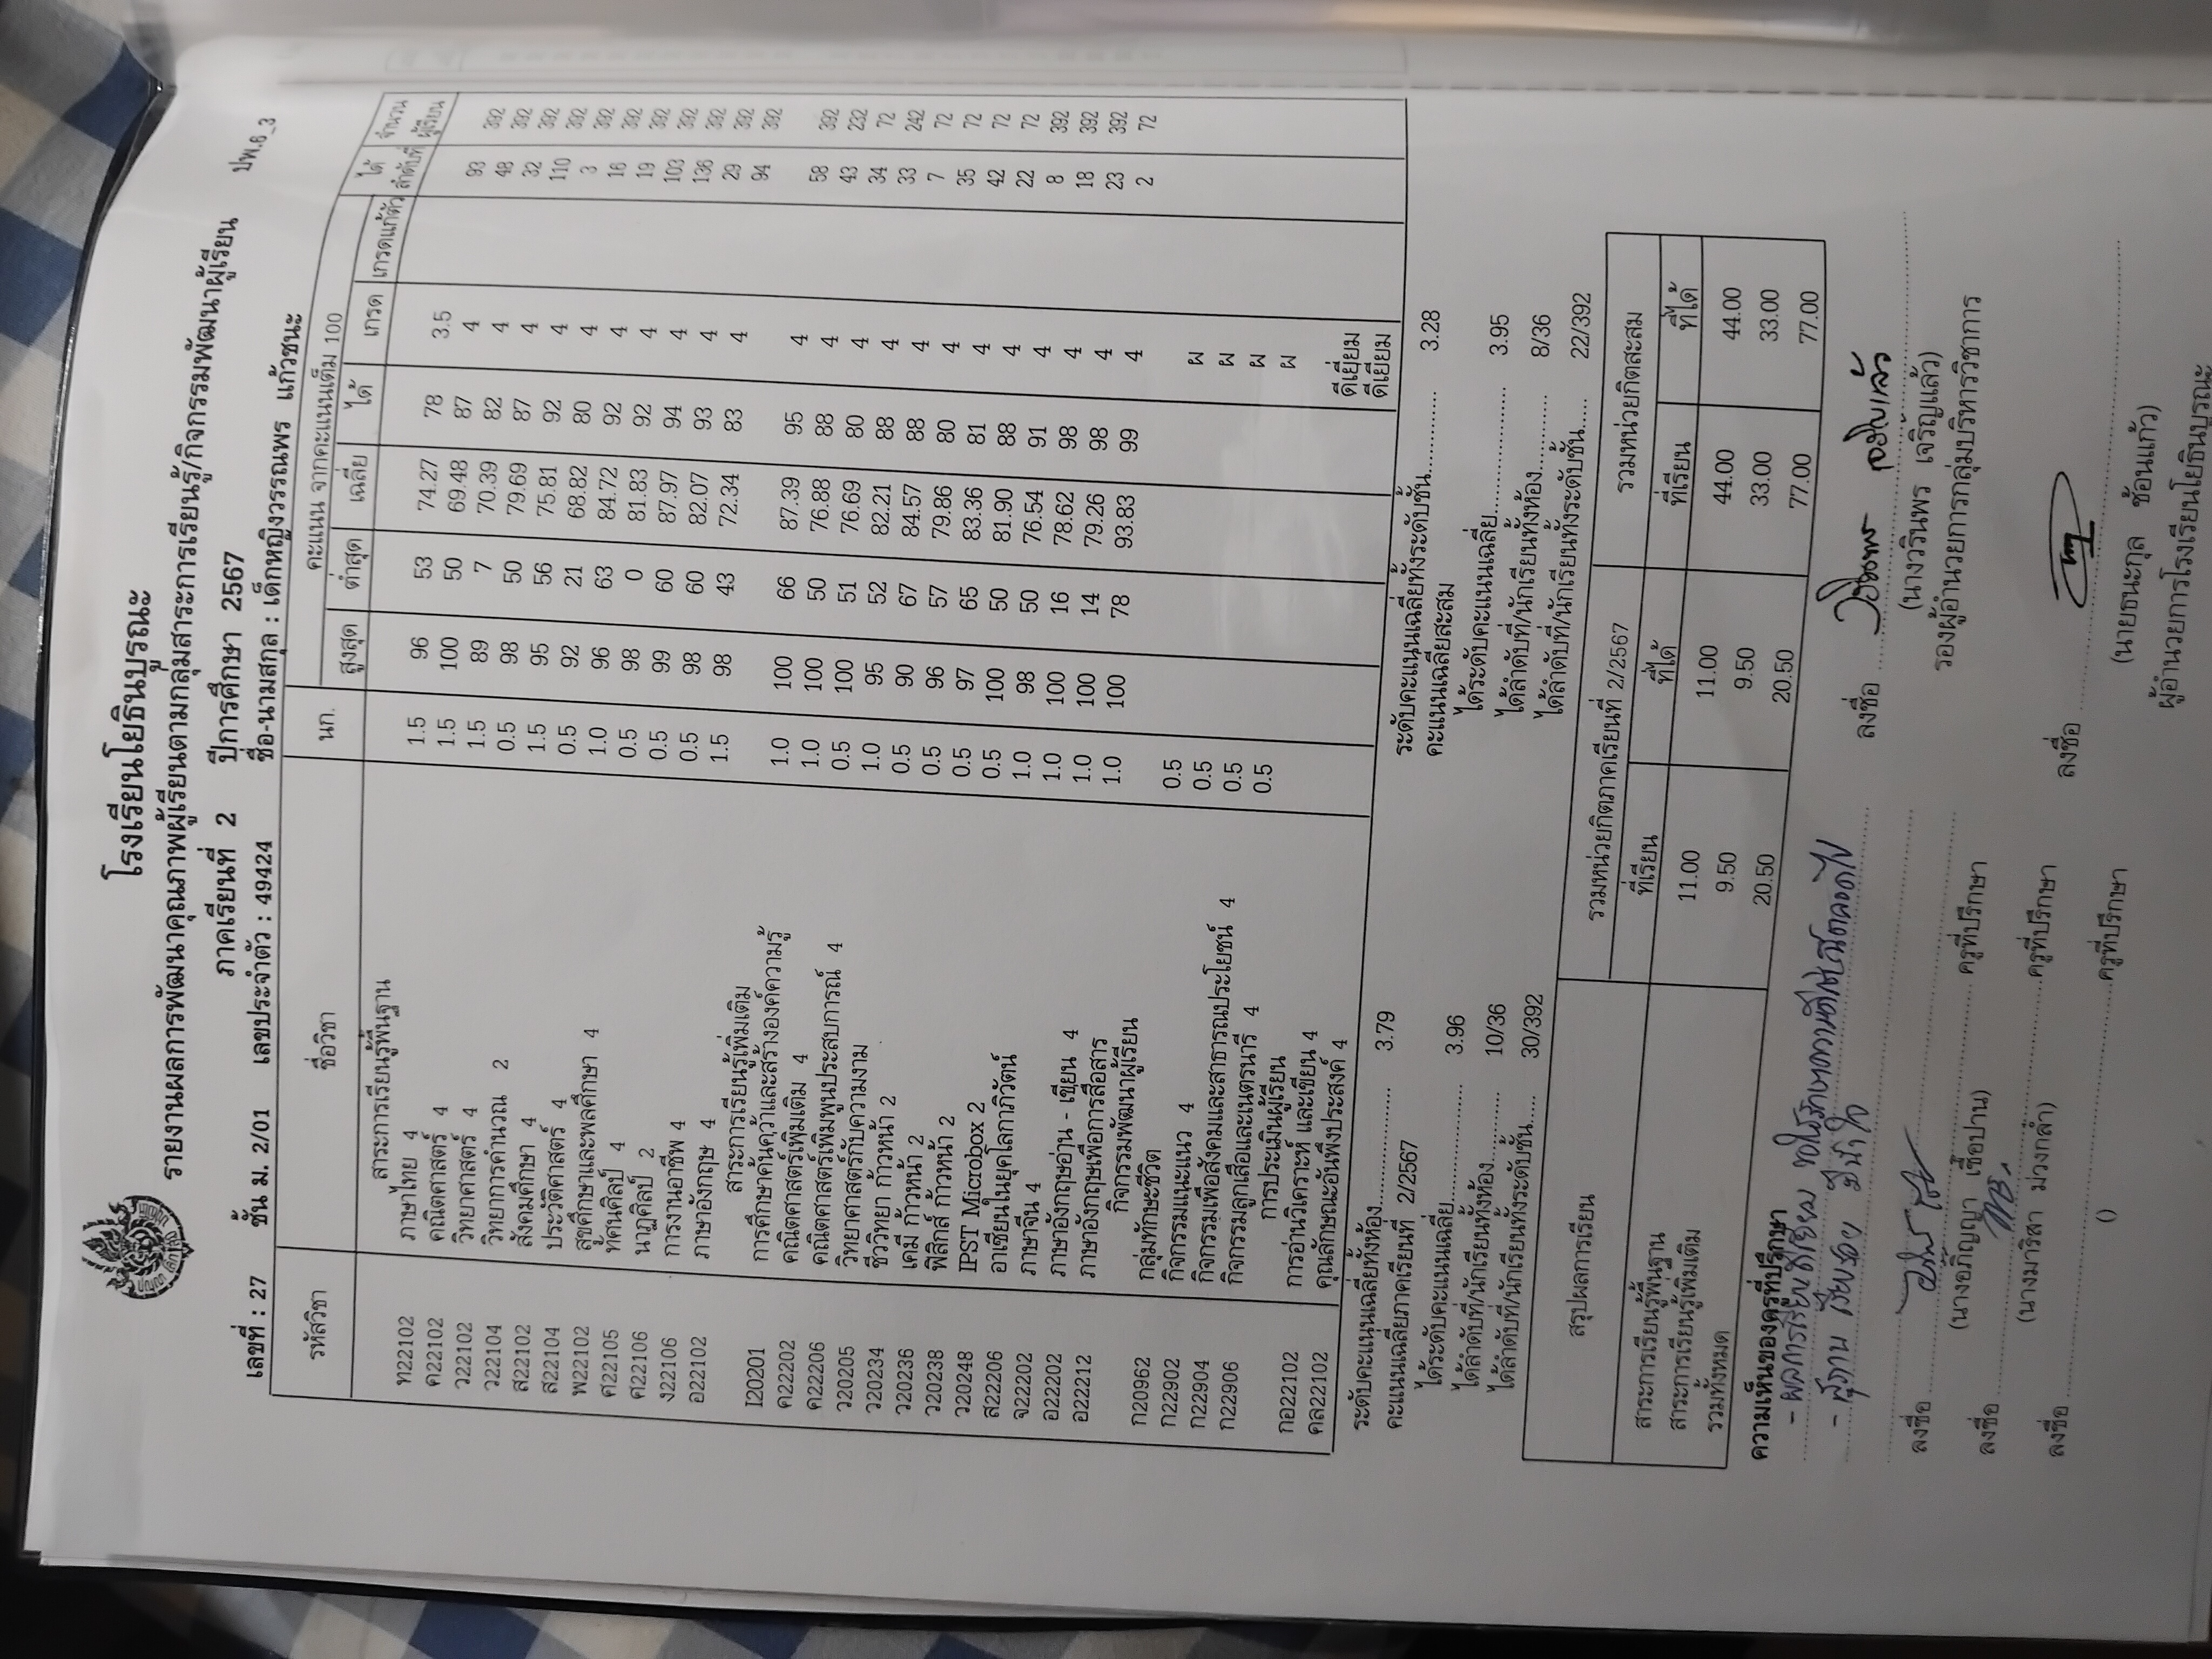 โรงเรียนโยธินบูรณะ
รายงานผลการพัฒนาคุณภาพผู้เรียนตามกลุ่มสาระการเรียนรู้/กิจกรรมพัฒนาผู้เรียน ปพ.6_3
ภาคเรียนที่ 2 ปีการศึกษา 2567
เลขที่ : 27 ชั้น ม. 2/01 เลขประจำตัว : 49424 ชื่อ-นามสกุล : เด็กหญิงวรรณพร แก้วชนะ
รหัสวิชา ชื่อวิชา นก. คะแนน จากคะแนนเต็ม 100 ได้ลำดับที่ จำนวนผู้เรียน
สูงสุด ต่ำสุด เฉลี่ย ได้ เกรด เกรดแก้ตัว
สาระการเรียนรู้พื้นฐาน
ท22102 ภาษาไทย 4 1.5 96 53 74.27 78 3.5 93 392
ค22102 คณิตศาสตร์ 4 1.5 100 50 69.48 87 4 48 392
ว22102 วิทยาศาสตร์ 4 1.5 89 7 70.39 82 4 32 392
ว22104 วิทยาการคำนวณ 2 0.5 98 50 79.69 87 4 110 392
ส22102 สังคมศึกษา 4 1.5 95 56 75.81 92 4 3 392
ส22104 ประวัติศาสตร์ 4 0.5 92 21 68.82 80 4 16 392
พ22102 สุขศึกษาและพลศึกษา 4 1.0 96 63 84.72 92 4 19 392
ศ22105 ทัศนศิลป์ 4 0.5 98 0 81.83 92 4 103 392
ศ22106 นาฏศิลป์ 2 0.5 99 60 87.97 94 4 136 392
ง22106 การงานอาชีพ 4 0.5 98 60 82.07 93 4 29 392
อ22102 ภาษาอังกฤษ 4 1.5 98 43 72.34 83 4 94 392
สาระการเรียนรู้เพิ่มเติม
I20201 การศึกษาค้นคว้าและสร้างองค์ความรู้ 1.0 100 66 87.39 95 4 58 392
ค22202 คณิตศาสตร์เพิ่มเติม 4 1.0 100 50 76.88 88 4 43 232
ค22206 คณิตศาสตร์เพิ่มพูนประสบการณ์ 4 0.5 100 51 76.69 80 4 34 72
ว20205 วิทยาศาสตร์กับความงาม 1.0 95 52 82.21 88 4 33 242
ว20234 ชีววิทยา ก้าวหน้า 2 0.5 90 67 84.57 88 4 7 72
ว20236 เคมี ก้าวหน้า 2 0.5 96 57 79.86 80 4 35 72
ว20238 ฟิสิกส์ ก้าวหน้า 2 0.5 97 65 83.36 81 4 42 72
ว20248 IPST Microbox 2 0.5 100 50 81.90 88 4 22 72
ส22206 อาเซียนในยุคโลกาภิวัตน์ 1.0 98 50 76.54 91 4 8 392
จ22202 ภาษาจีน 4 1.0 100 16 78.62 98 4 18 392
อ22202 ภาษาอังกฤษอ่าน - เขียน 4 1.0 100 14 79.26 98 4 23 392
อ22212 ภาษาอังกฤษเพื่อการสื่อสาร 1.0 100 78 93.83 99 4 2 72
กิจกรรมพัฒนาผู้เรียน
ก20962 กลุ่มทักษะชีวิต 0.5 ผ
ก22902 กิจกรรมแนะแนว 4 0.5 ผ
ก22904 กิจกรรมเพื่อสังคมและสาธารณประโยชน์ 4 0.5 ผ
ก22906 กิจกรรมลูกเสือและเนตรนารี 4 0.5 ผ
การประเมินผู้เรียน
กอ22102 การอ่านวิเคราะห์ และเขียน 4 ดีเยี่ยม
คล22102 คุณลักษณะอันพึงประสงค์ 4 ดีเยี่ยม
ระดับคะแนนเฉลี่ยทั้งห้อง.................. 3.79 ระดับคะแนนเฉลี่ยทั้งระดับชั้น............... 3.28
คะแนนเฉลี่ยภาคเรียนที่ 2/2567 คะแนนเฉลี่ยสะสม
ได้ระดับคะแนนเฉลี่ย.................. 3.96 ได้ระดับคะแนนเฉลี่ย.................. 3.95
ได้ลำดับที่/นักเรียนทั้งห้อง............ 10/36 ได้ลำดับที่/นักเรียนทั้งห้อง............ 8/36
ได้ลำดับที่/นักเรียนทั้งระดับชั้น...... 30/392 ได้ลำดับที่/นักเรียนทั้งระดับชั้น...... 22/392
สรุปผลการเรียน รวมหน่วยกิตภาคเรียนที่ 2/2567 รวมหน่วยกิตสะสม
ที่เรียน ที่ได้ ที่เรียน ที่ได้
สาระการเรียนรู้พื้นฐาน 11.00 11.00 44.00 44.00
สาระการเรียนรู้เพิ่มเติม 9.50 9.50 33.00 33.00
รวมทั้งหมด 20.50 20.50 77.00 77.00
ความเห็นของครูที่ปรึกษา
- ผลการเรียนดีเยี่ยม ขอให้รักษาความดีเช่นนี้ตลอดไป
- สุภาพ เรียบร้อย มีน้ำใจ
ลงชื่อ
(นางวรินพร เจริญแล้ว)
รองผู้อำนวยการกลุ่มบริหารวิชาการ
ลงชื่อ ครูที่ปรึกษา
(นางอภิญญา เชื้อปาน)
ลงชื่อ ครูที่ปรึกษา
(นางมาริสา ม่วงกล่ำ)
ลงชื่อ ครูที่ปรึกษา
()
ลงชื่อ
(นายธนะกุล ซ้อนแก้ว)
ผู้อำนวยการโรงเรียนโยธินบูรณะ